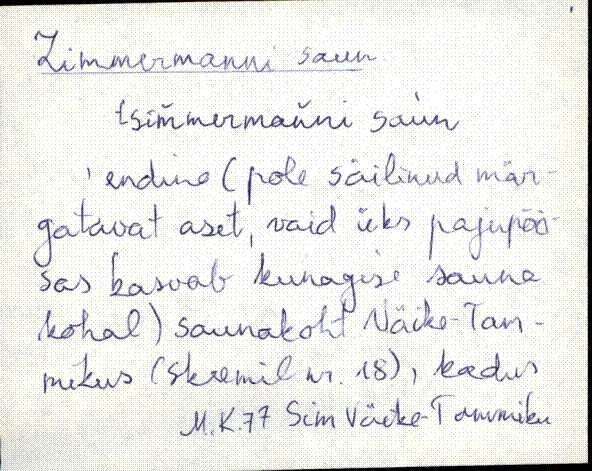 Zimmermanni saun
tsim̆mermañni saùn
'endine (pole säilinud mär-
gatavat aset, vaid üks pajupõõ-
sas kasvab kunagise sauna
kohal) saunakoht Väike-Tam-
mikus (skeemil nr. 18), kadus
M.K.77 Sim Väike-Tammiku